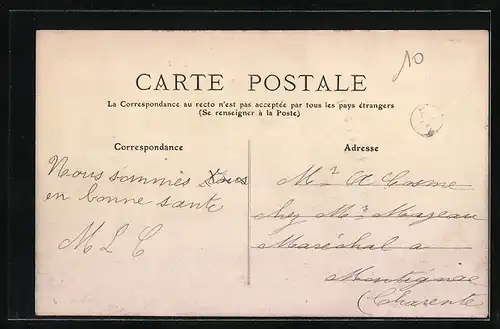 10
CARTE POSTALE
La Correspondance au recto n'est pas acceptée par tous les pays étrangers
(Se renseigner à la Poste)
Correspondance
Nous sommes
en bonne santé
M L C
Adresse
Mr A Cosme
chez Mr Mazeau
Maréchal a
Montignac
(Charente